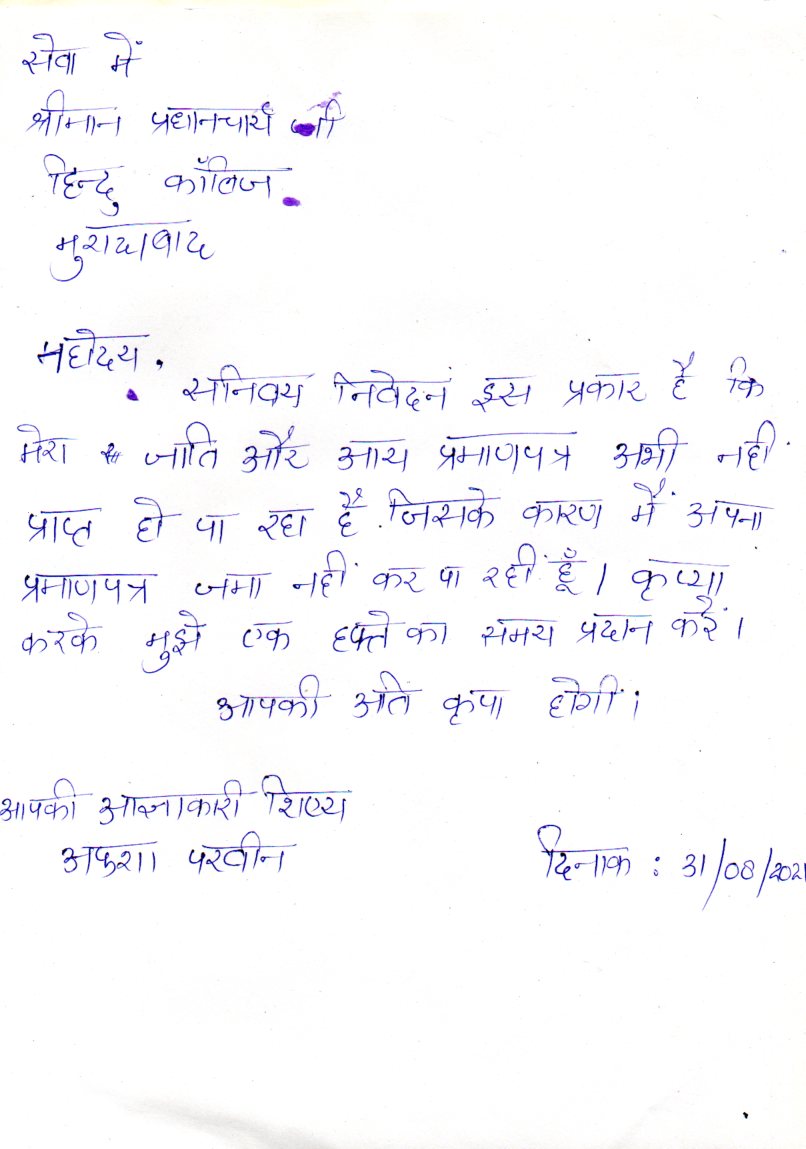 सेवा में
श्रीमान प्रधानचार्य जी
हिन्दु कॉलिज
मुरादाबाद
महोदय,
सनिवय निवेदन इस प्रकार है कि
मेरा जाति और आय प्रमाणपत्र अभी नहीं
प्राप्त हो पा रहा है जिसके कारण मैं अपना
प्रमाणपत्र जमा नहीं कर पा रहीं हूँ। कृप्या
करके मुझे एक हफ्ते का समय प्रदान करें।
आपकी अति कृपा होगी।
आपकी आज्ञाकारी शिष्य
अफशा परवीन
दिनाक : 31/08/2021